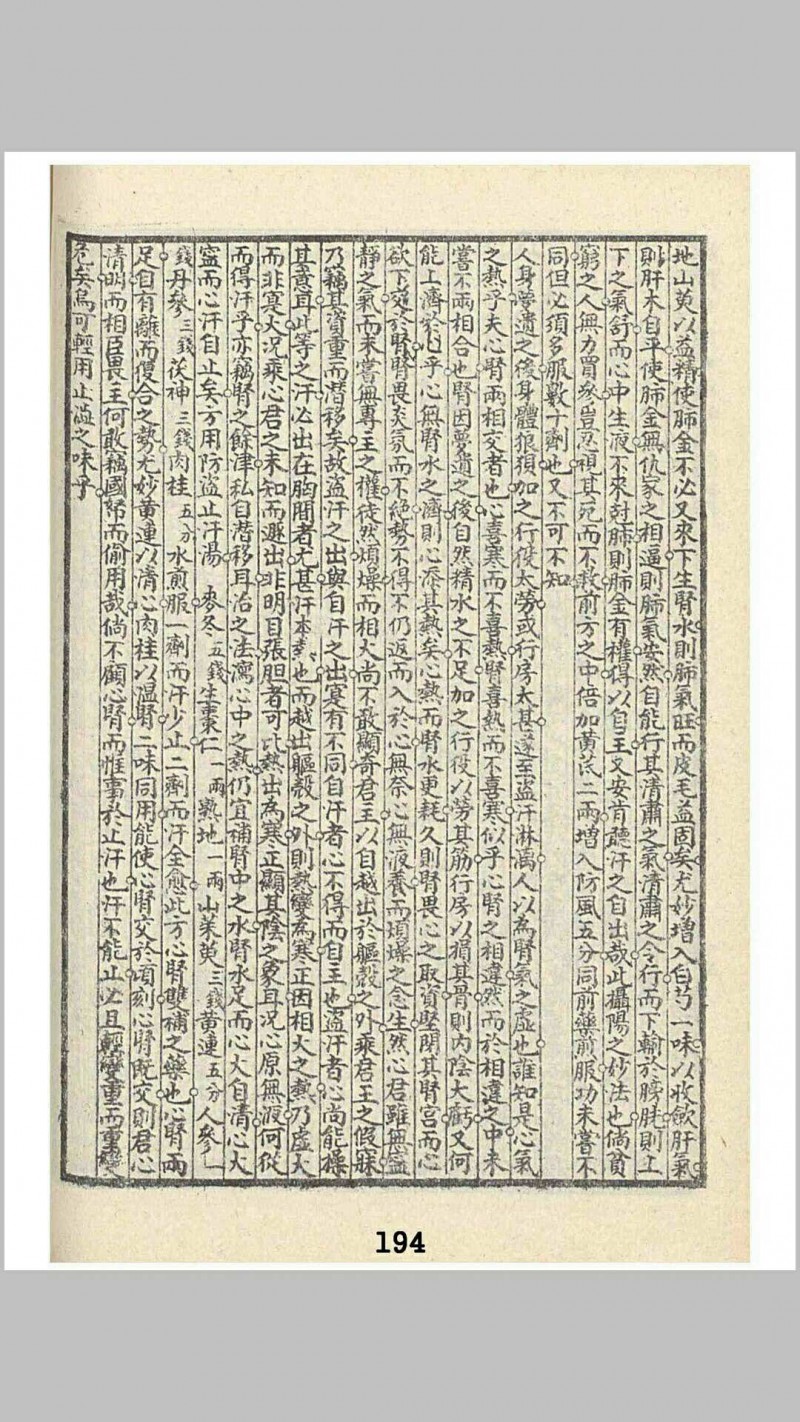 地山萸以益精使肺金不必又來下生腎水則肺氣旺而皮毛益固矣尤妙增入白芍一味以收歛肝氣
則肝木自平使肺金無仇家之相逼則肺氣安然自能行其清肅之氣清肅之令行而下輸於膀胱則上
下之氣舒而心中生液不來尅肺則肺金有權得以自主又安肯聽汗之自出哉此攝陽之妙法也倘貧
窮之人無力買參豈忍視其死而不救前方之中倍加黄芪二兩增入防風五分同前藥煎服功未嘗不
同但必須多服數十劑也又不可不知
人身夢遺之後身體狼狽加之行役太勞或行房太甚遂至盜汗淋漓人以為腎氣之虛也誰知是心氣
之熱乎夫心腎兩相交者也心喜寒而不喜熱腎喜熱而不喜寒似乎心腎之相違然而於相違之中未
嘗不兩相合也腎因夢遺之後自然精水之不足加之行役以勞其筋行房以損其骨則内陰大虧又何
能上濟於心乎心無腎水之濟則心添其熱矣心熱而腎水更耗久則腎畏心之取資堅閉其腎宮而心
欲下交於腎腎畏炎氛而不絶勢不得不仍返而入於心無奈心無液養而煩燥之念生然心君雖無寧
靜之氣而未嘗無專主之權徒然煩燥而相火尚不敢顯奇君主以自越出於軀殼之外乘君王之假寐
乃竊其資重而潛移矣故盜汗之出與自汗之出寔有不同自汗者心不得而自主也盜汗者心尚能操
其意耳此等之汗必出在胸間者尤甚汗本熱也而越出軀殼之外則熱變為寒正因相火之熱乃虛火
而非寔火况乘心君之未知而遯出非明目張胆者可比熱出為寒正顯其陰之象耳况心原無液何從
而得汗乎亦竊腎之餘津私自潛移耳治之法瀉心中之熱仍宜補腎中之水腎水足而心火自清心火
寧而心汗自止矣方用防盜止汗湯　麥冬五錢生棗仁一兩熟地一兩山茱萸三錢黄連五分人參一
錢丹參三錢茯神三錢肉桂五分水煎服一劑而汗少止二劑而汗全愈此方心腎雙補之藥也心腎兩
足自有離而復合之勢尤妙黄連以清心肉桂以溫腎二味同用能使心腎交於頃刻心腎既交則君心
清明而相臣畏主何敢竊國帑而偷用哉倘不顧心腎而惟事於止汗也汗不能止必且輕變重而重變
危矣烏可輕用止澁之味乎
194